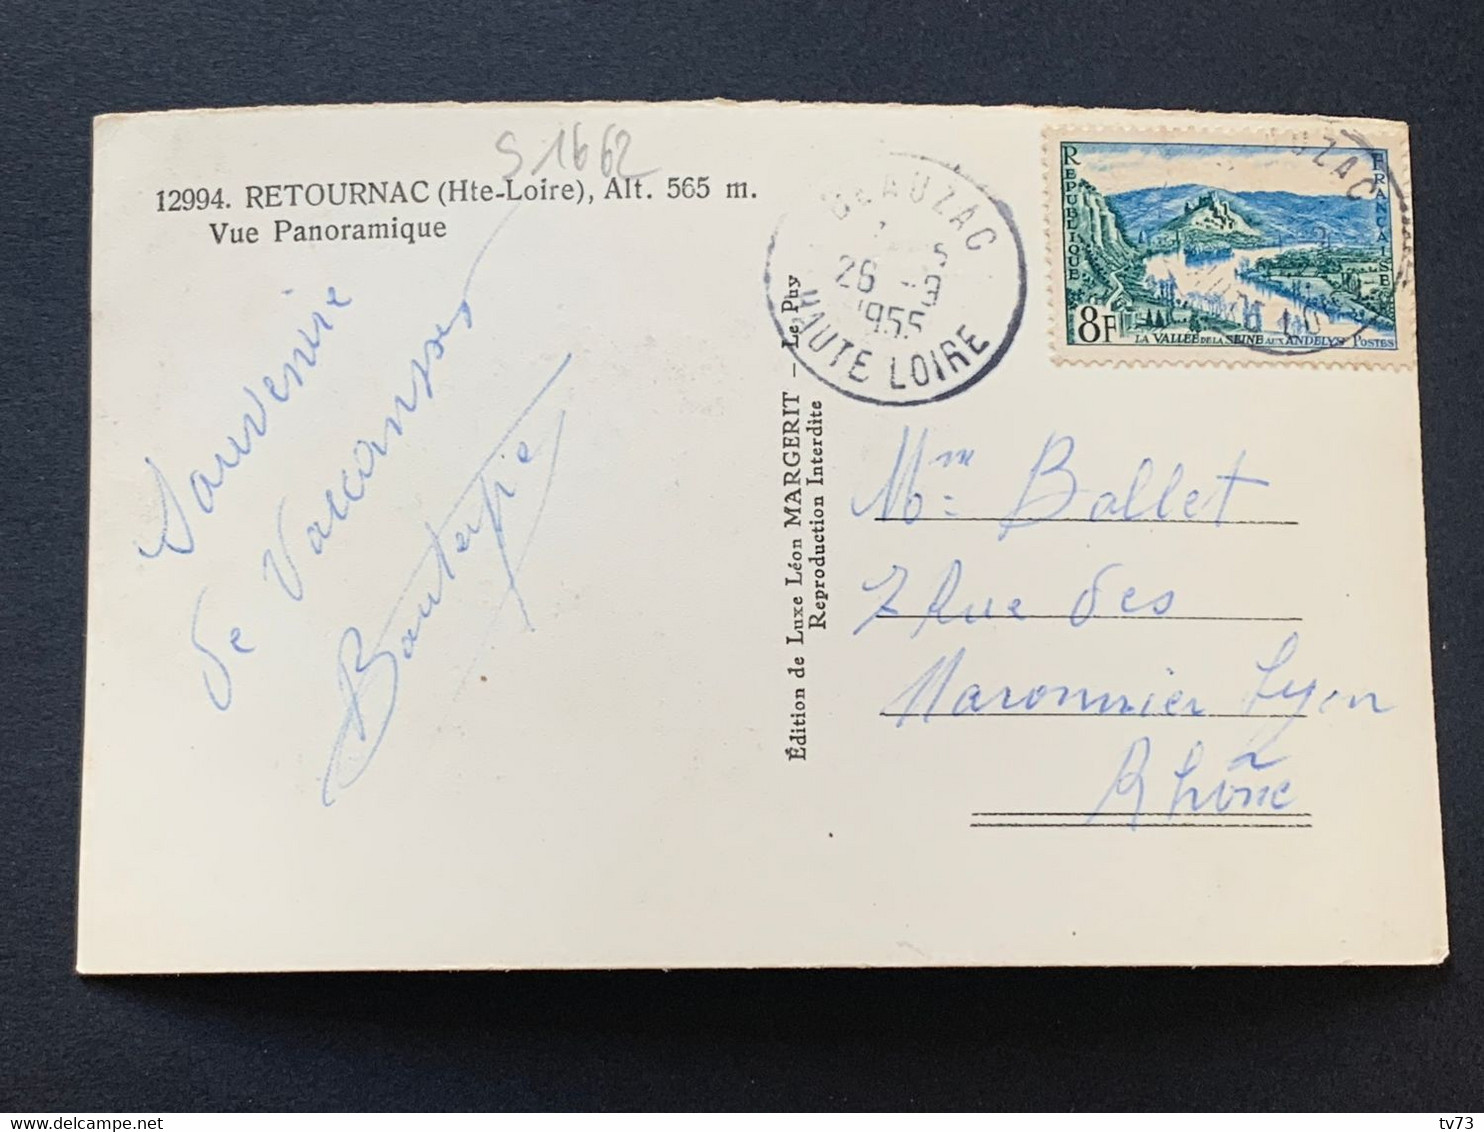 S 1662
12994. RETOURNAC (Hte-Loire), Alt. 565 m.
Vue Panoramique
Sauvenire
de Vacansses
Édition de Luxe Léon MARGERIT — Le Puy
Reproduction Interdite
BEAUZAC
26 -9
1955
HAUTE LOIRE
REPUBLIQUE
FRANCAISE
8F
LA VALLEE DE LA SEINE AUX ANDELYS POSTES
Mme Ballet
7 Rue des
Maronnier Lyon
Rhône
Delcampe.net
tv73